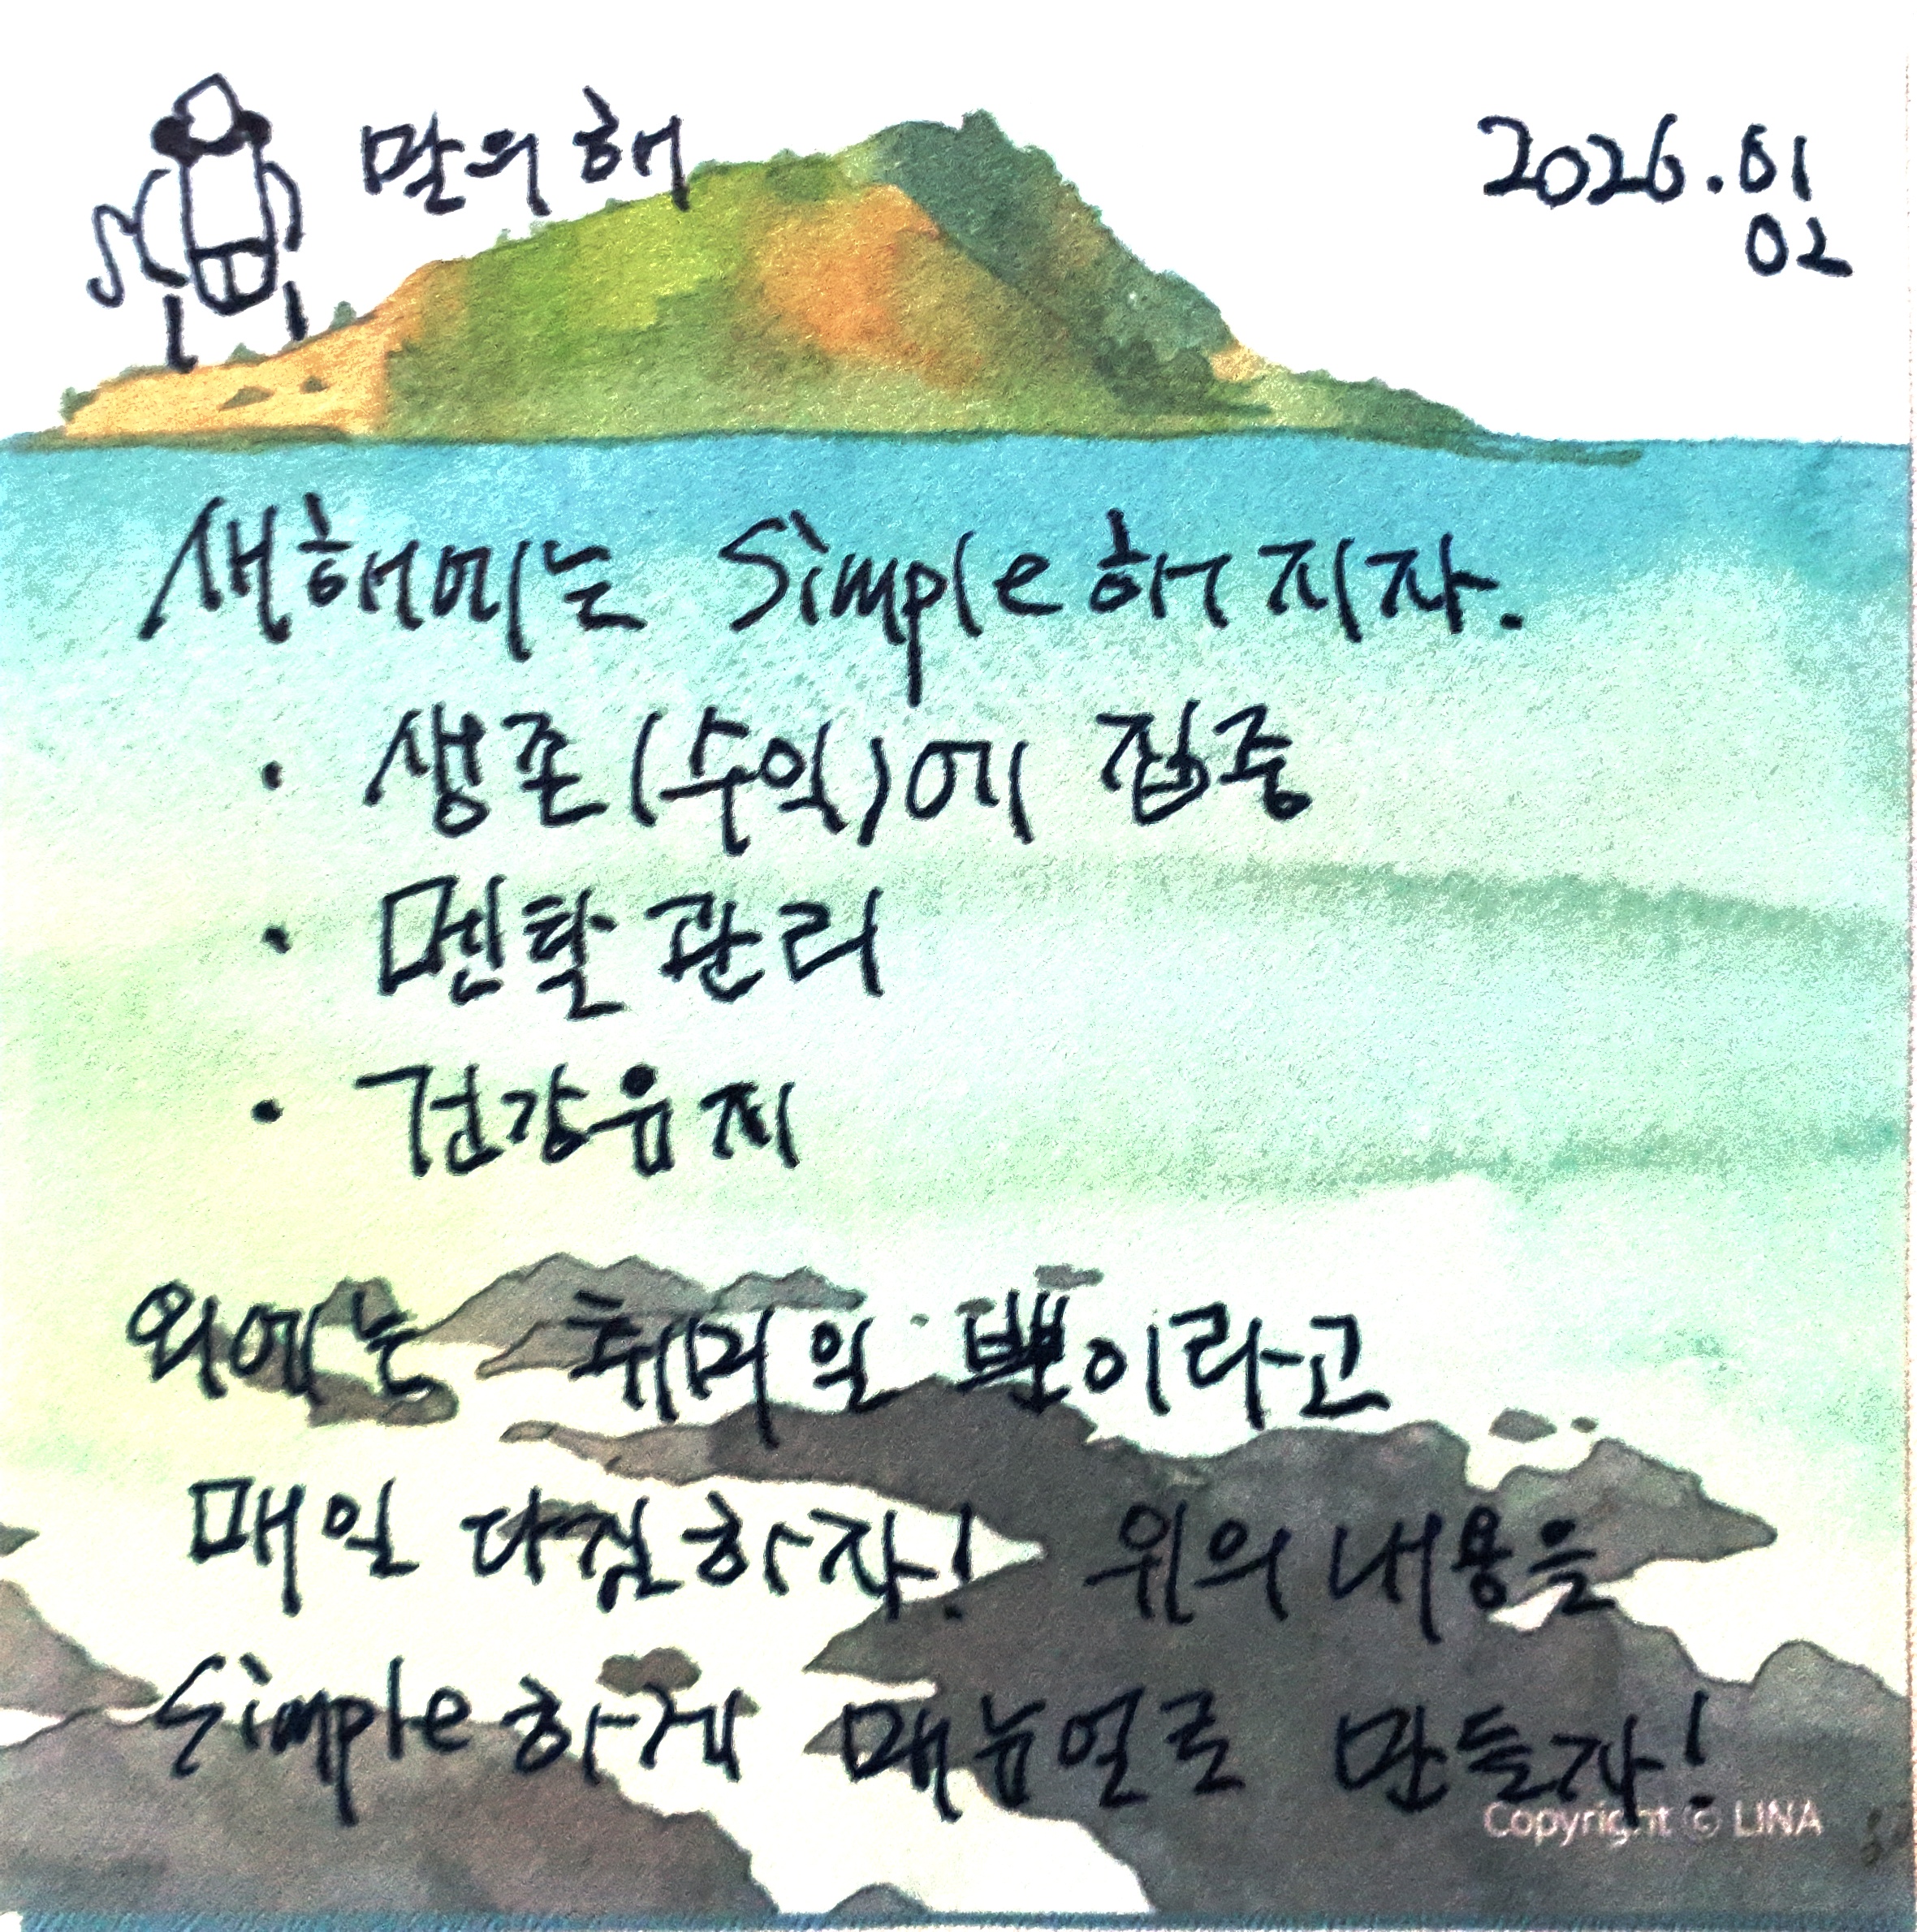 말의 해
2026.01
02
새해에는 Simple해지자.
· 생존(수익)에 집중
· 멘탈 관리
· 건강유지
외에는 취미일 뿐이라고
매일 다짐하자! 위의 내용을
Simple하게 매뉴얼로 만들자!
Copyright © LINA